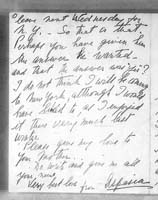 leave next Wednesday for
N.Y. — So that is that.
Perhaps you have given him
the answer he wanted —
and that the answer was "yes"?
I do not think I will be coming
to New York, although I would
have liked to as I enjoyed
it there very much that
winter.
Please give my love to
you mother.
Do write and give me all
you news,
Very best love from Aspasia